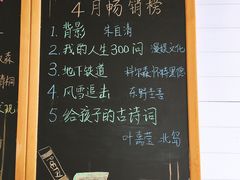 4月畅销榜
1. 背影 朱自清
2. 我的人生300问 漫娱文化
3. 地下铁道 科尔森·怀特黑德
4. 风雪追击 东野圭吾
5 给孩子的古诗词
叶嘉莹 北岛